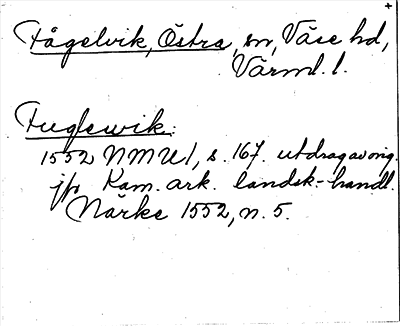 Fågelvik, Östra, sn, Väse hd,
Värml. l.
Fuglewik:
1552 NMU1, s. 167. utdrag av orig.
jfr Kam. ark. landsk.-handl.
Närke 1552, n. 5.